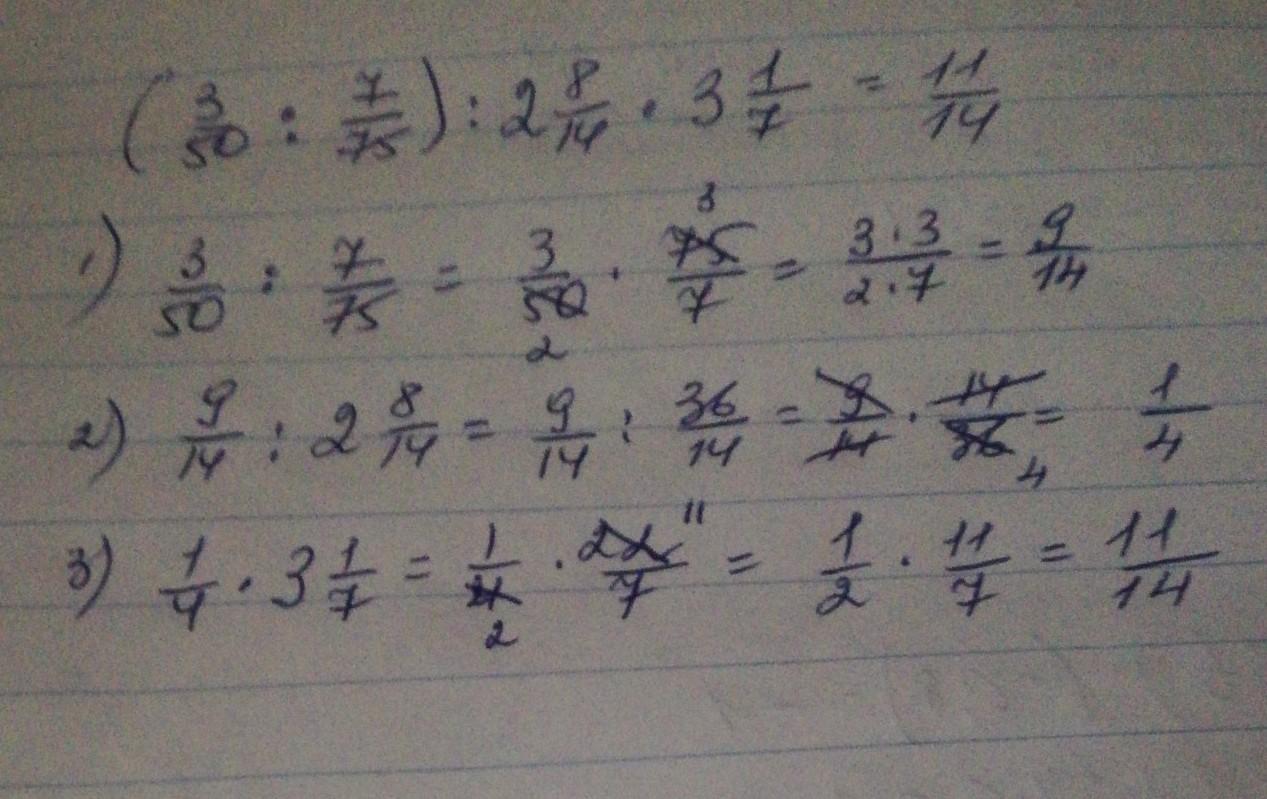 (3/50 : 7/75) : 2 8/14 · 3 1/7 = 11/14
1) 3/50 : 7/75 = 3/50 2 · 3 75/7 = 3·3/2·7 = 9/14
2) 9/14 : 2 8/14 = 9/14 : 36/14 = 9/14 · 14/36 4 = 1/4
3) 1/4 · 3 1/7 = 1/4 2 · 22/7 11 = 1/2 · 11/7 = 11/14